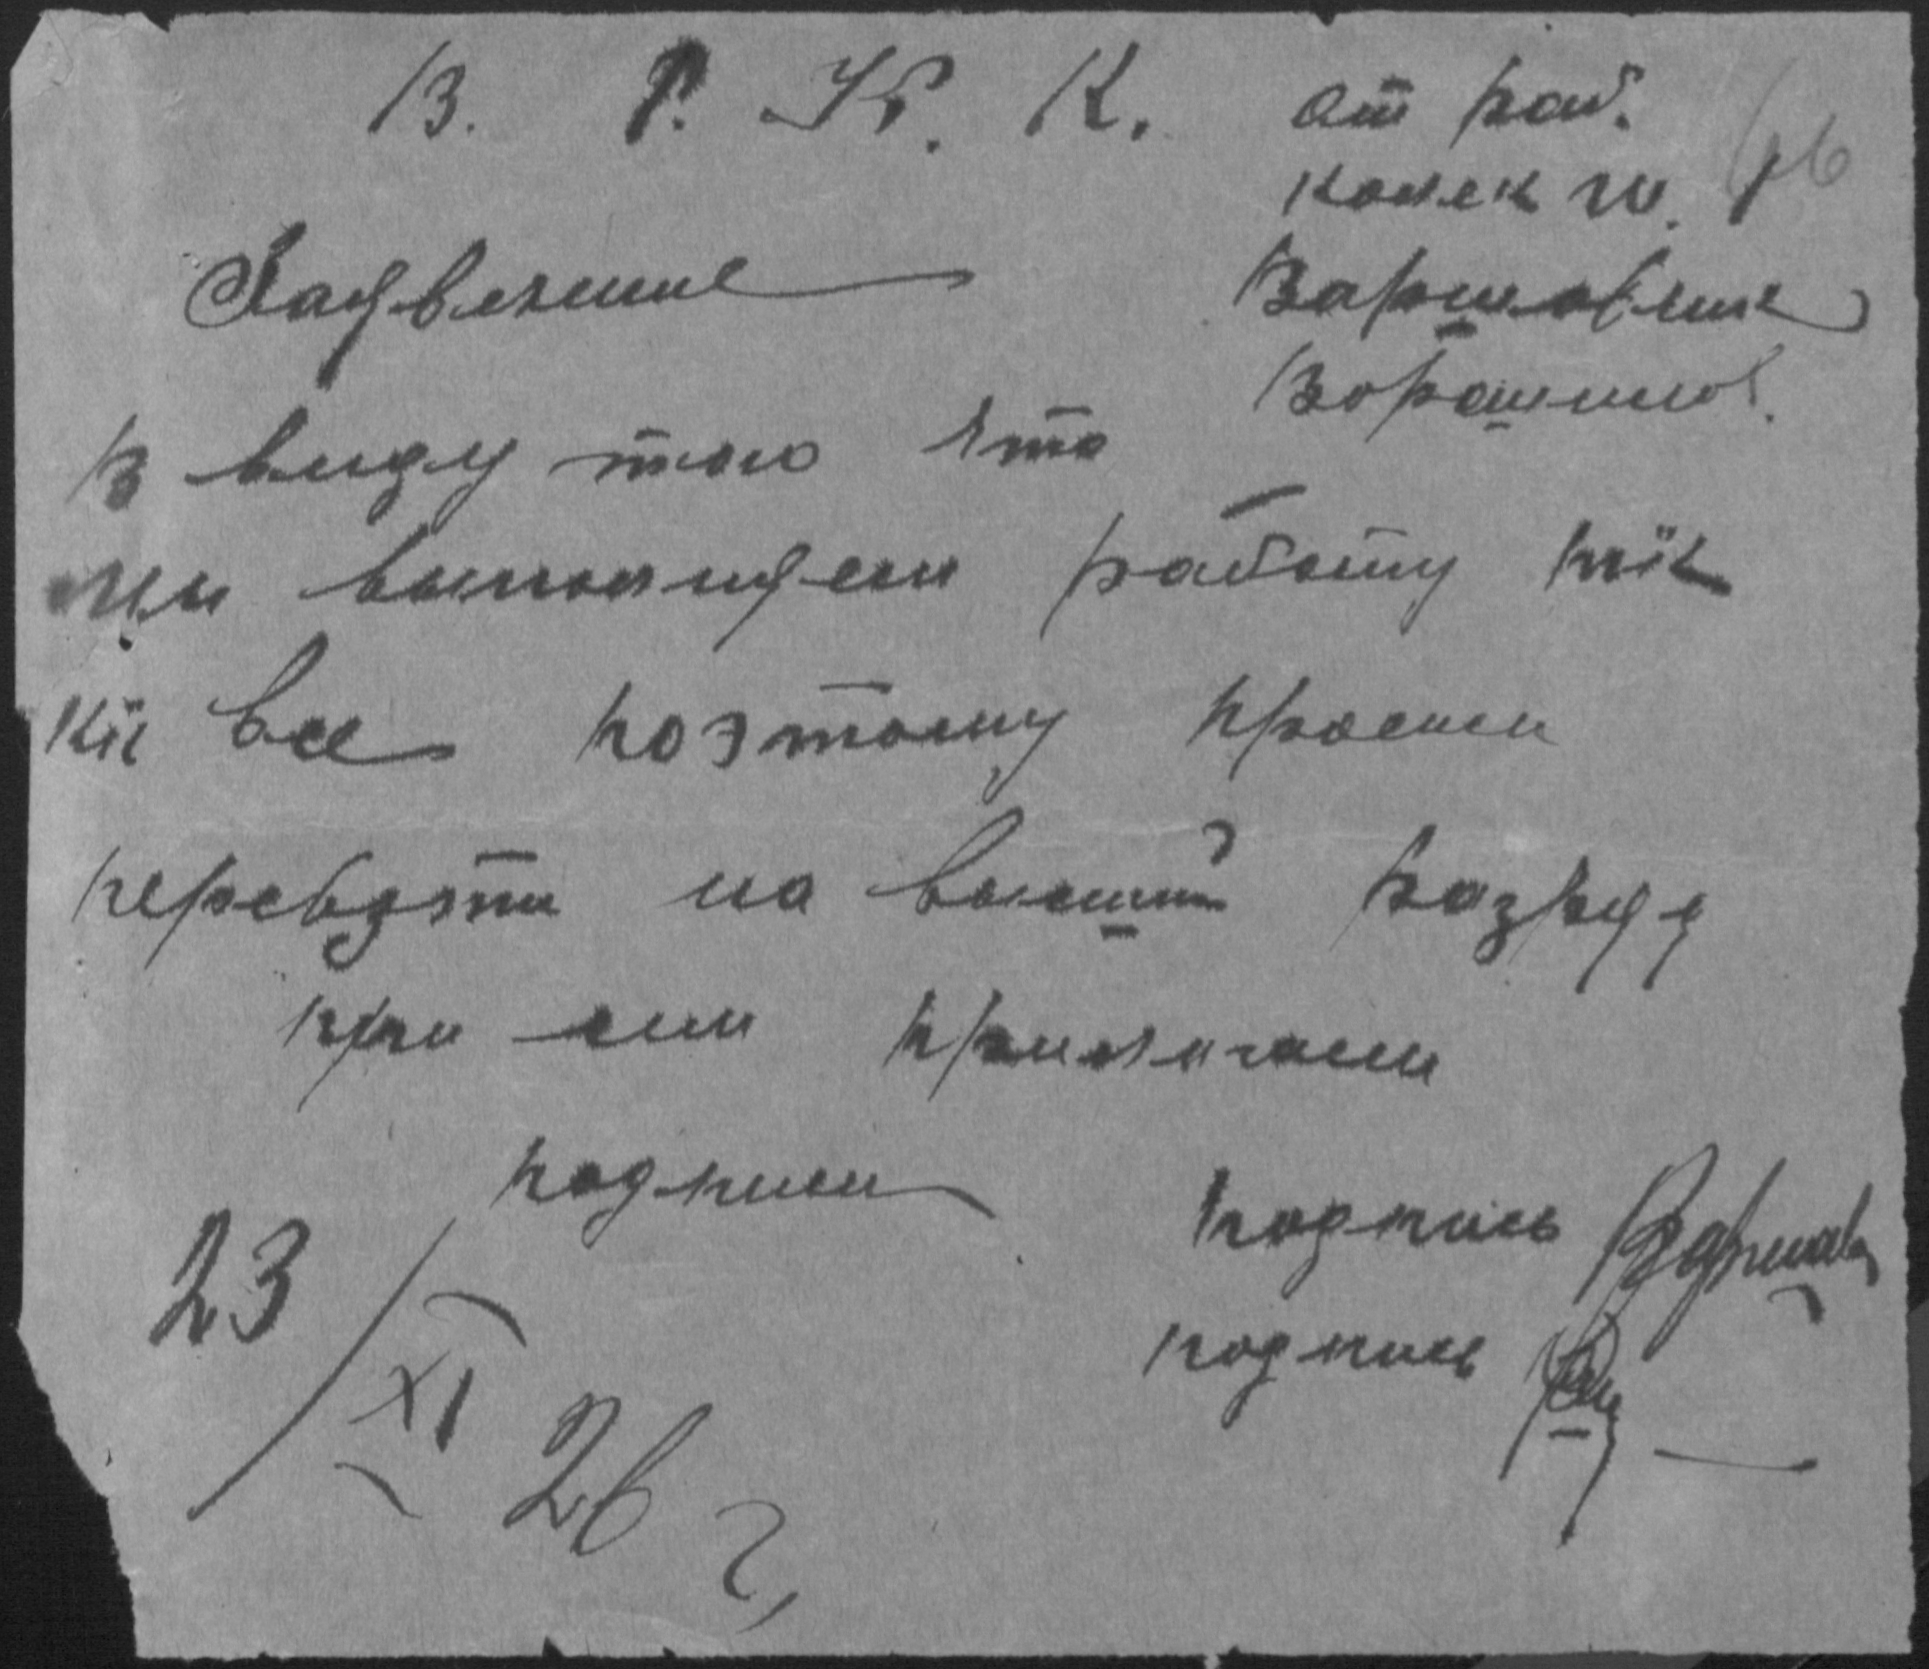 В. Р. К. К. от раб.
колек ш.
Заявление
Ворошилов.
В виду того что
мы выполняем работу так
как все поэтому просим
перевдэти на высший разряд
при сим прилогаем
подписи
подпись Варшав
подпись
23/XI 26 г,
66